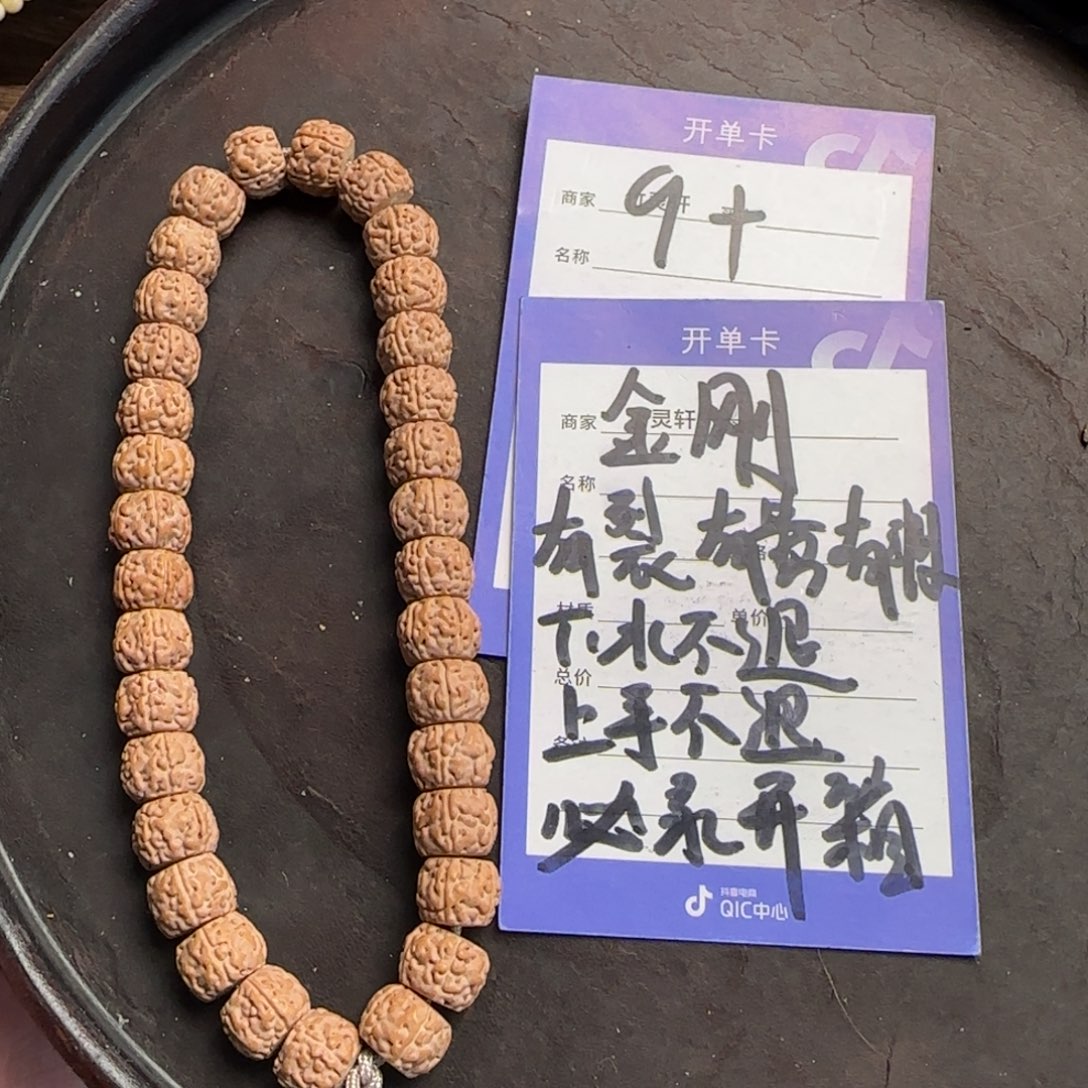 开单卡
商家 9+
名称
开单卡
商家 金刚 灵轩
名称
有裂有劈有瑕
材质 单价
下水不退
总价
上手不退
必录开箱
抖音电商
QIC中心